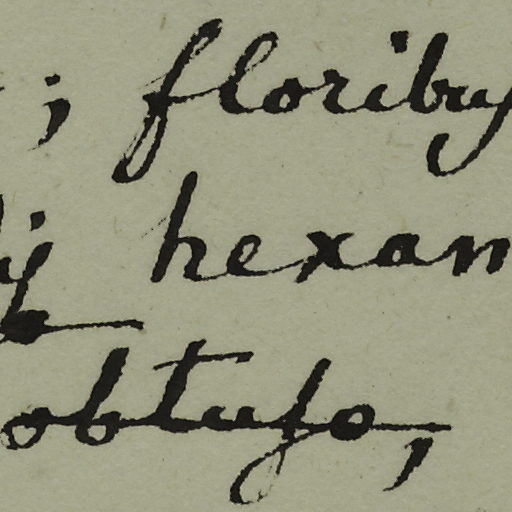 ; floribus
hexan
obtuso,